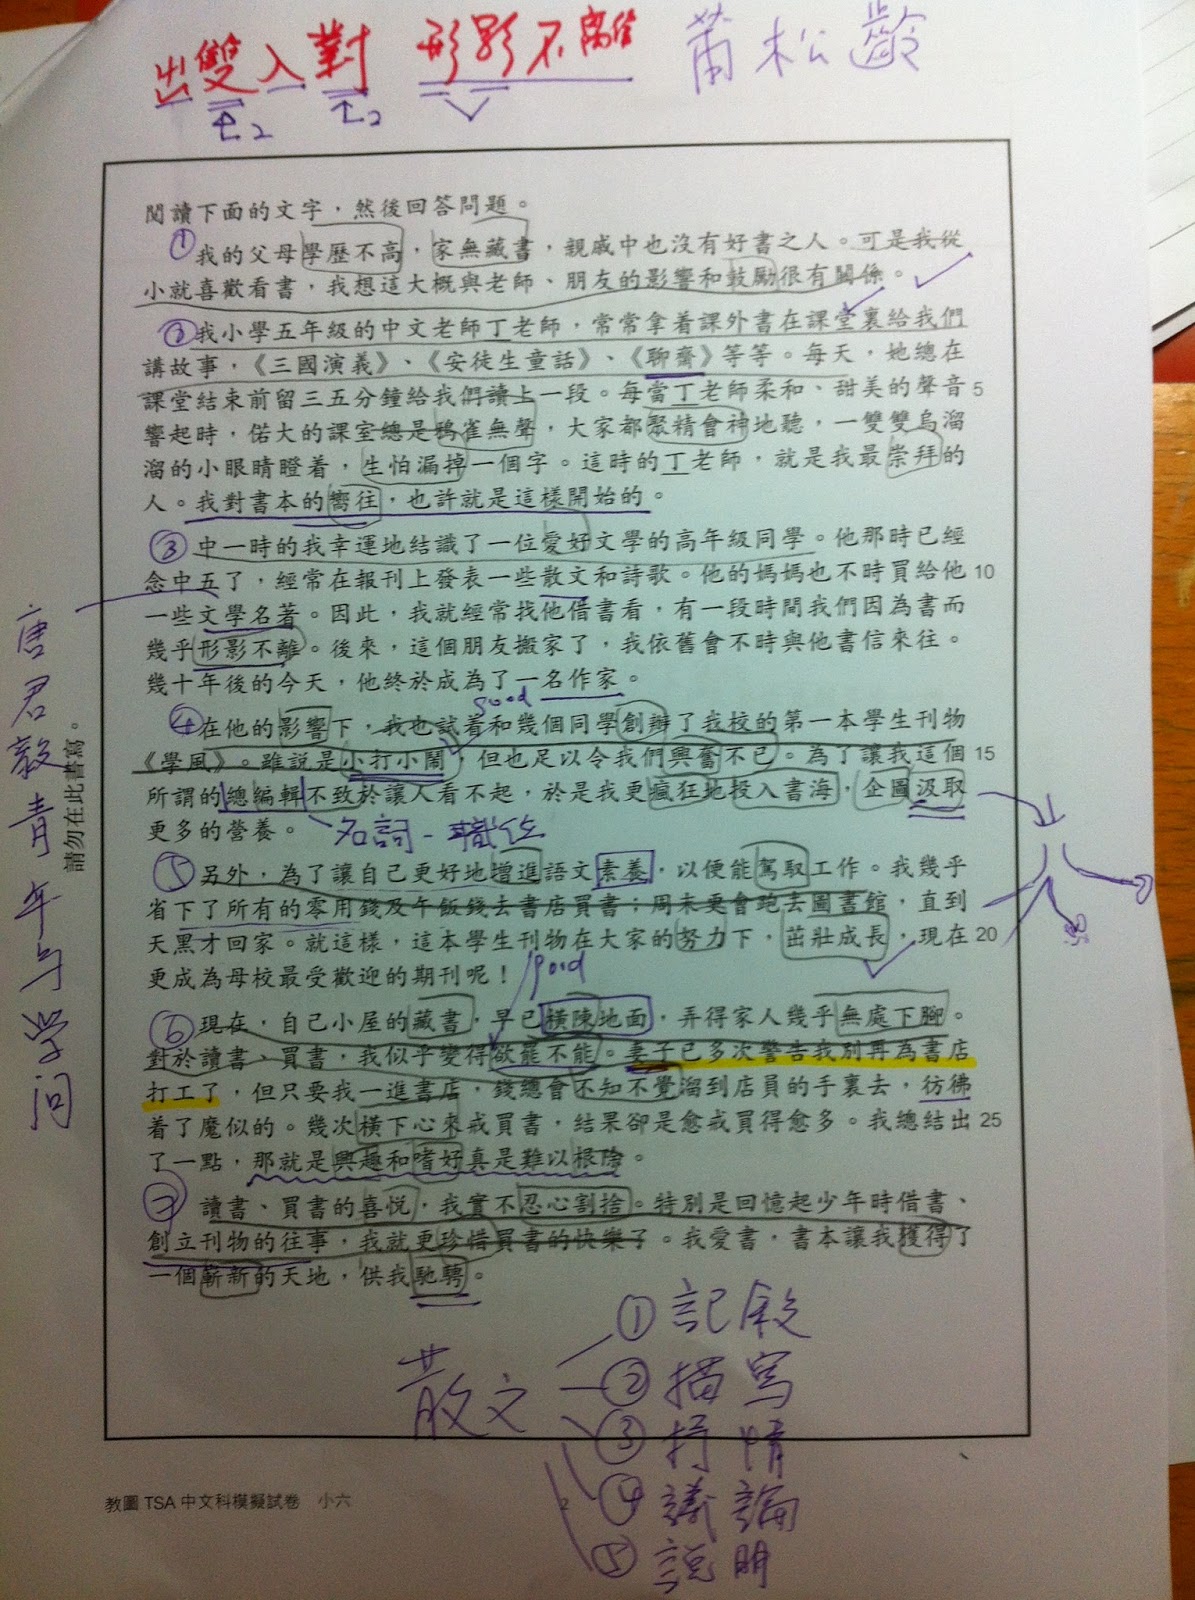 出雙入對 形影不離 莆松齡
閱讀下面的文字，然後回答問題。
① 我的父母學歷不高，家無藏書，親戚中也沒有好書之人。可是我從
小就喜歡看書，我想這大概與老師、朋友的影響和鼓勵很有關係。
② 我小學五年級的中文老師丁老師，常常拿着課外書在課堂裏給我們
講故事，《三國演義》、《安徒生童話》、《聊齋》等等。每天，她總在
課堂結束前留三五分鐘給我們讀上一段。每當丁老師柔和、甜美的聲音 5
響起時，偌大的課室總是鴉雀無聲，大家都聚精會神地聽，一雙雙烏溜
溜的小眼睛瞪着，生怕漏掉一個字。這時的丁老師，就是我最崇拜的
人。我對書本的嚮往，也許就是這樣開始的。
③ 中一時的我幸運地結識了一位愛好文學的高年級同學。他那時已經
念中五了，經常在報刊上發表一些散文和詩歌。他的媽媽也不時買給他 10
一些文學名著。因此，我就經常找他借書看，有一段時間我們因為書而
幾乎形影不離。後來，這個朋友搬家了，我依舊會不時與他書信來往。
幾十年後的今天，他終於成為了一名作家。
good
④ 在他的影響下，我也試着和幾個同學創辦了我校的第一本學生刊物
《學風》。雖說是小打小鬧，但也足以令我們興奮不已。為了讓我這個 15
所謂的總編輯不致於讓人看不起，於是我更瘋狂地投入書海，企圖汲取
更多的營養。
名詞－職位
⑤ 另外，為了讓自己更好地增進語文素養，以便能駕馭工作。我幾乎
省下了所有的零用錢及午飯錢去書店買書；周末更會跑去圖書館，直到
天黑才回家。就這樣，這本學生刊物在大家的努力下，茁壯成長，現在 20
更成為母校最受歡迎的期刊呢！
good
⑥ 現在，自己小屋的藏書，早已橫陳地面，弄得家人幾乎無處下腳。
對於讀書、買書，我似乎變得欲罷不能。妻子已多次警告我別再為書店
打工了，但只要我一進書店，錢總會不知不覺溜到店員的手裏去，彷彿
着了魔似的。幾次橫下心來戒買書，結果卻是愈戒買得愈多。我總結出 25
了一點，那就是興趣和嗜好真是難以根除。
⑦ 讀書、買書的喜悅，我實不忍心割捨。特別是回憶起少年時借書、
創立刊物的往事，我就更珍惜買書的快樂了。我愛書，書本讓我獲得了
一個嶄新的天地，供我馳騁。
散文
①記敘
②描寫
③抒情
④議論
⑤說明
唐君毅青年与学问
請勿在此書寫。
教圖 TSA 中文科模擬試卷 小六
2